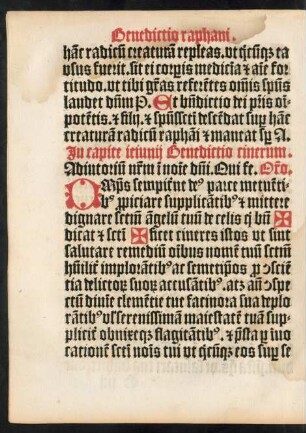 Benedictio raphani.
hāc radicū creaturam repleas. vt q̄cūq̄ ea
vsus fuerit. sit ei corpis medicīa ⁊ aīe for
titudo. vt tibi gr̄as referētes om̄is spūs
laudet dn̄m P. Et bn̄dictio dei pr̄is oī̄po
potētis. ⁊ filij. ⁊ spūsscti descēdat sup hāc
creaturā radicū raphāi ⁊ maneat sp̄ A.
In capite ieiunij Benedictio cinerum.
Adiutoriū nr̄m ī noīe dn̄i. Qui fe. Or̄o.
OMp̄s sempit̄ne deꝰ parce metuētibꝰ
ꝓpiciare supplicātibꝰ ⁊ mittere
dignare sctm̄ āgelū tuū de celis q̄ bn̄ ✠
dicat ⁊ scti ✠ ficet cineres istos vt sint
salutare remediū oībus nomē tuū sctm̄
hūilit̄ implorātibꝰ ac semetip̄os ꝓ ↄsciē
tia delictoꝝ suoꝝ accusātibꝰ. atꝫ aū̄ ↄsp
ectū diuīe clemētie tue facinora sua deplo
rātibꝰ vꝉ serenissimā maiestatē tuā sup
plicit̄ obnixeqꝫ flagitātibꝰ. ⁊ p̄sta ꝑ īuo
cationē scti noīs tui vt q̄cūqꝫ eos sup̄ se